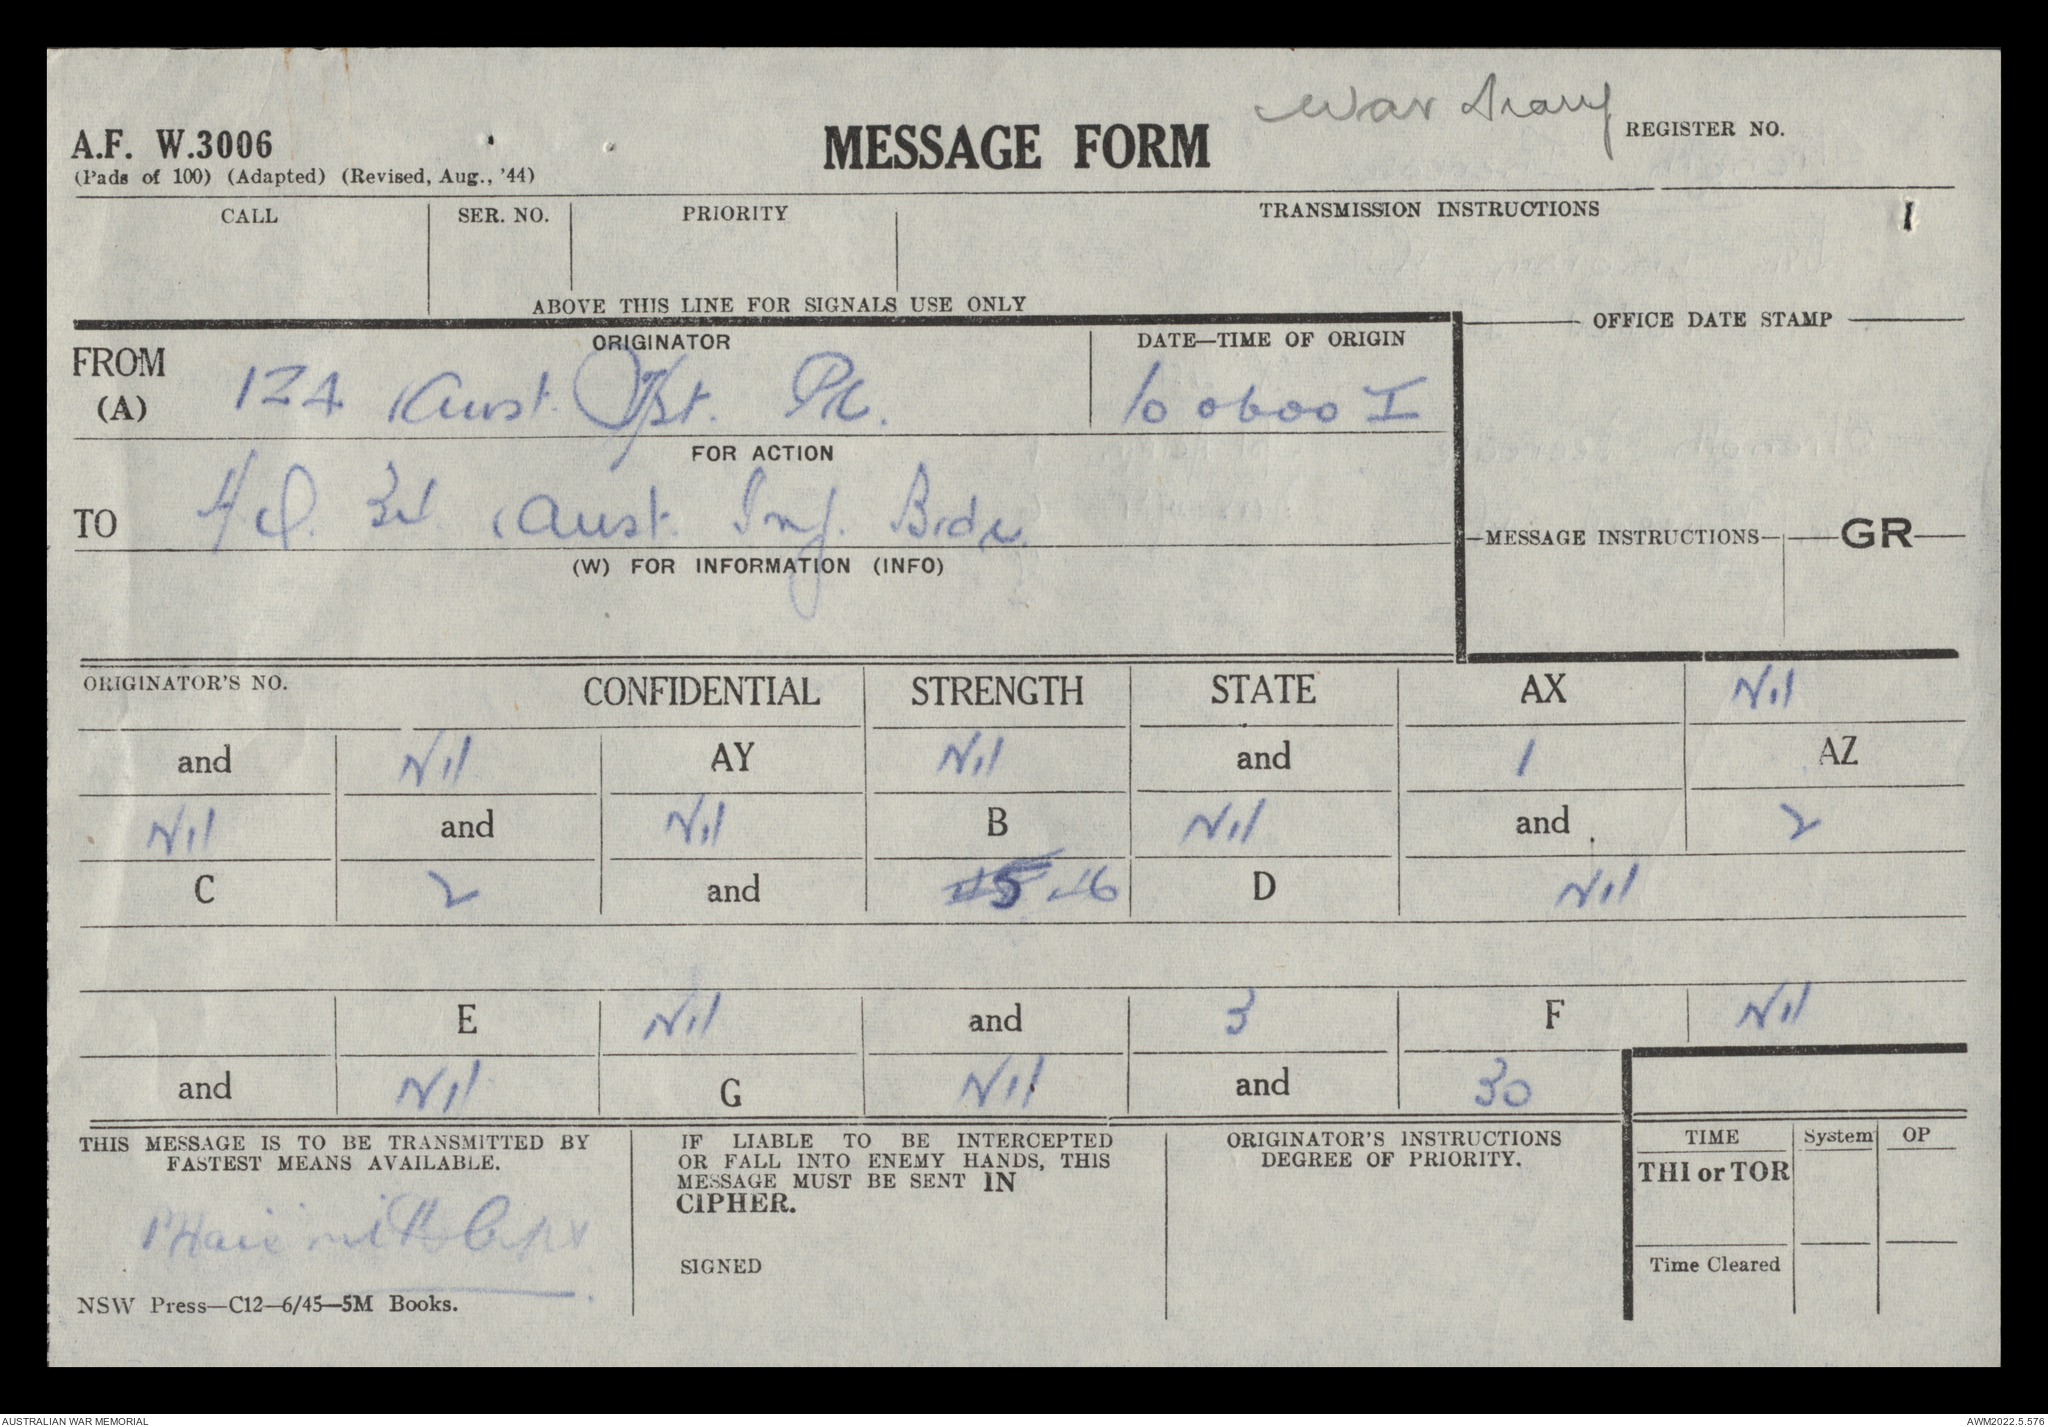 War Diary
A.F. W.3006 MESSAGE FORM REGISTER NO.
(Pads of 100) (Adapted) (Revised, Aug., '44)
CALL SER. NO. PRIORITY TRANSMISSION INSTRUCTIONS
1
ABOVE THIS LINE FOR SIGNALS USE ONLY
OFFICE DATE STAMP
FROM ORIGINATOR DATE—TIME OF ORIGIN
(A) 124 Aust. Tpt. Pl. 10 0600 I
FOR ACTION
TO HQ. 34 Aust. Inf. Bde.
MESSAGE INSTRUCTIONS GR
(W) FOR INFORMATION (INFO)
ORIGINATOR'S NO. CONFIDENTIAL STRENGTH STATE AX Nil
and Nil AY Nil and 1 AZ
Nil and Nil B Nil and 2
C 2 and 46 D Nil
E Nil and 3 F Nil
and Nil G Nil and 30
THIS MESSAGE IS TO BE TRANSMITTED BY
FASTEST MEANS AVAILABLE.
IF LIABLE TO BE INTERCEPTED
OR FALL INTO ENEMY HANDS, THIS
MESSAGE MUST BE SENT IN
CIPHER.
SIGNED
ORIGINATOR'S INSTRUCTIONS
DEGREE OF PRIORITY.
TIME System OP
THI or TOR
Time Cleared
NSW Press—C12—6/45—5M Books.
AUSTRALIAN WAR MEMORIAL AWM2022.5.576